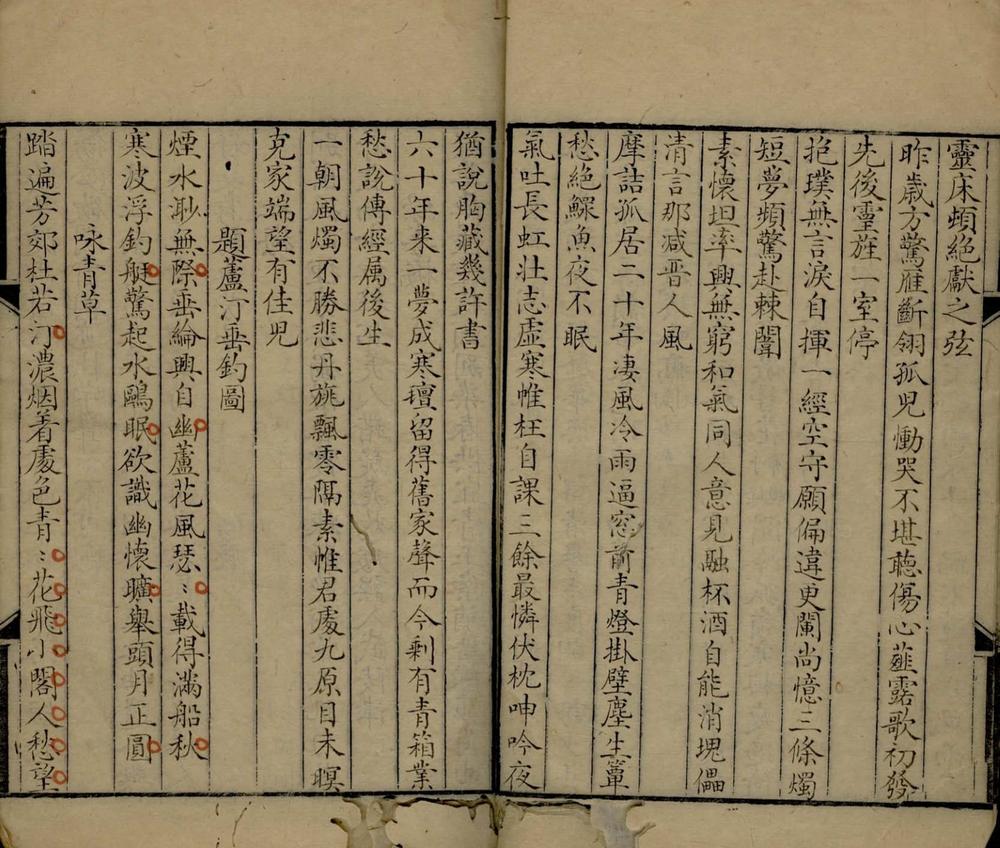 靈床頻絕獻之弦
昨歲方驚雁斷翎孤兒慟哭不堪聽傷心薤露歌初發
先後靈旌一室停
抱璞無言淚自揮一經空守願偏違更闌尚憶三條燭
短夢頻驚赴棘闈
素懷坦率興無窮和氣同人意見融杯酒自能消塊儡
清言那减晋人風
摩詰孤居二十年淒風冷雨逼窓前青燈掛壁塵生簟
愁絕鰥魚夜不眠
氣吐長虹壯志虛寒帷枉自課三餘最憐伏枕呻吟夜
猶說胸藏幾許書
六十年来一夢成寒氊留得舊家聲而今剩有青箱業
愁說傳經属後生
一朝風燭不勝悲丹旐飄零隔素帷君處九原目未暝
克家端望有佳兒
題蘆汀垂釣圖
煙水渺無際垂綸興自幽蘆花風瑟〻載得滿船秋
寒波浮釣艇驚起水鷗眠欲識幽懷曠舉頭月正圓
咏青草
踏遍芳郊杜若汀濃烟着處色青〻花飛小閣人愁望